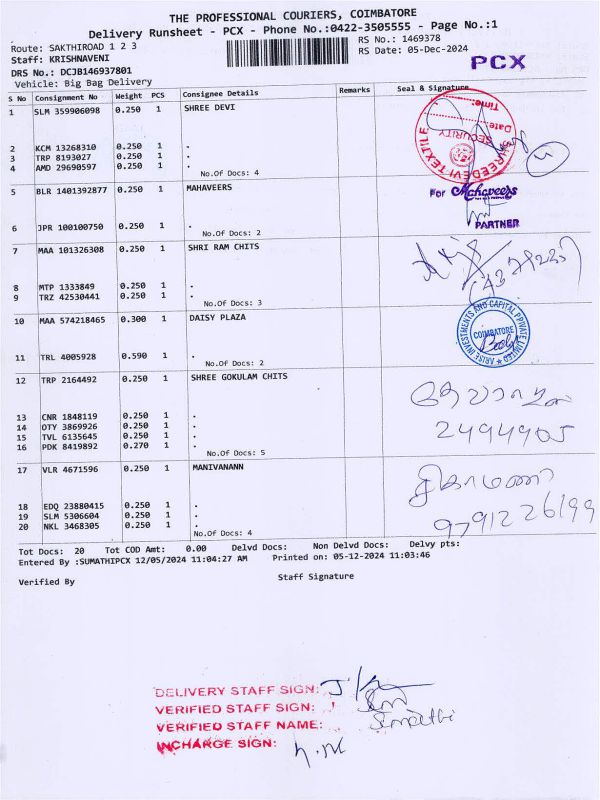 THE PROFESSIONAL COURIERS, COIMBATORE
Delivery Runsheet - PCX - Phone No.:0422-3505555 - Page No.:1
Route: SAKTHIROAD 1 2 3
RS No.: 1469378
Staff: KRISHNAVENI
RS Date: 05-Dec-2024
PCX
DRS No.: DCJB146937801
Vehicle: Big Bag Delivery
S No Consignment No Weight PCS Consignee Details Remarks Seal & Signature
1 SLM 359906098 0.250 1 SHREE DEVI
2 KCM 13268310 0.250 1 .
3 TRP 8193027 0.250 1 .
4 AMD 29690597 0.250 1 .
No.Of Docs: 4
Time:
Date:
SECURITY
SHREEDEVI TEXTILE
5 BLR 1401392877 0.250 1 MAHAVEERS
For Mahaveers
PARTNER
6 JPR 100100750 0.250 1 .
No.Of Docs: 2
7 MAA 101326308 0.250 1 SHRI RAM CHITS
8 MTP 1333849 0.250 1 .
9 TRZ 42530441 0.250 1 .
No.Of Docs: 3
10 MAA 574218465 0.300 1 DAISY PLAZA
ARISE INVESTMENTS AND CAPITAL PRIVATE LIMITED
COIMBATORE
11 TRL 4005928 0.590 1 .
No.Of Docs: 2
12 TRP 2164492 0.250 1 SHREE GOKULAM CHITS
13 CNR 1848119 0.250 1 .
14 OTY 3869926 0.250 1 .
15 TVL 6135645 0.250 1 .
16 PDK 8419892 0.270 1 .
No.Of Docs: 5
2494905
17 VLR 4671596 0.250 1 MANIVANANN
சிகாமணி
9791226199
18 EDQ 23880415 0.250 1 .
19 SLM 5306604 0.250 1 .
20 NKL 3468305 0.250 1 .
No.Of Docs: 4
Tot Docs: 20 Tot COD Amt: 0.00 Delvd Docs: Non Delvd Docs: Delvy pts:
Entered By :SUMATHIPCX 12/05/2024 11:04:27 AM Printed on: 05-12-2024 11:03:46
Verified By
Staff Signature
DELIVERY STAFF SIGN:
VERIFIED STAFF SIGN:
VERIFIED STAFF NAME: Sumathi
INCHARGE SIGN: